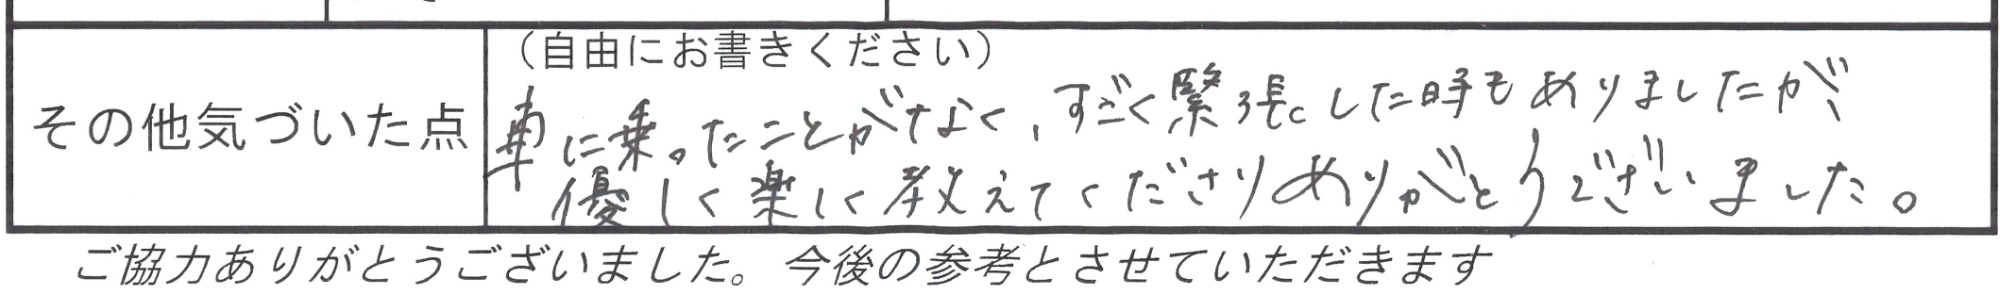 （自由にお書きください）
その他気づいた点
車に乗ったことがなく、すごく緊張した時もありましたが
優しく楽しく教えてくださりありがとうございました。
ご協力ありがとうございました。今後の参考とさせていただきます